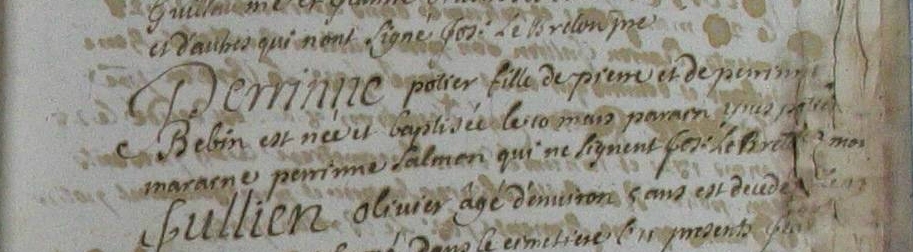 Guillaume et
et d'autres qui nont signé Jos: Le Breton pre
Perrinne potier fille de pierre et de perrinne
Bebin est née et baptisée le 10 mars parain yves potier
maraene perrinne Salmon qui ne signent Jos: Le Breton
Jullien olivier âgé d'environ 5 ans est decede
Dans le cimetiere presents